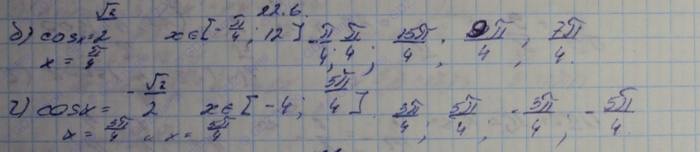 22.6.
б) cosx = √2/2 x∈[-π/4; 12] π/4; π/4; 15π/4; 9π/4; 7π/4.
x = π/4
г) cosx = -√2/2 x∈[-4; 5π/4]. 3π/4; 5π/4; -3π/4; -5π/4.
x = 3π/4 и x = 5π/4